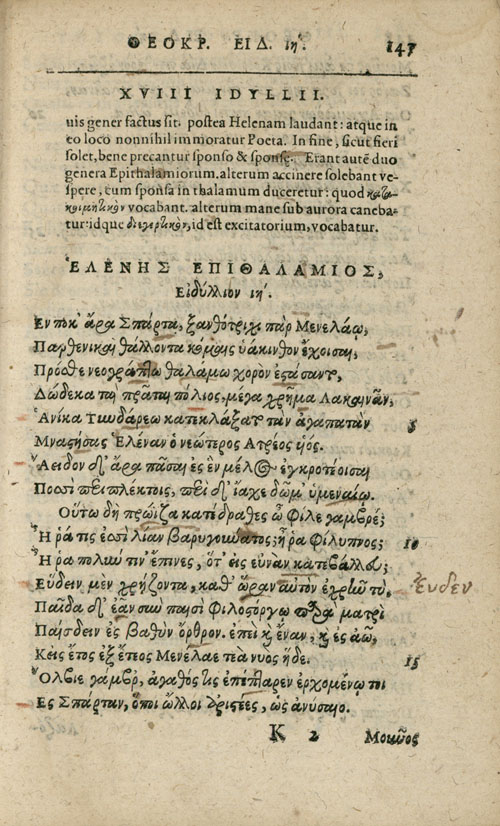 ΘΕΟΚΡ. ΕΙΔ. ιή. 147
XVIII IDYLLII.
uis gener factus sit. postea Helenam laudant: atque in
eo loco nonnihil immoratur Poeta. In fine, sicut fieri
solet, bene precantur sponso & sponsę. Erant autē duo
genera Epithalamiorum. alterum accinere solebant ve-
spere, cum sponsa in thalamum duceretur: quod κατα-
κοιμητικὸν vocabant. alterum mane sub aurora caneba-
tur: idque διεγερτικὸν, id est excitatorium, vocabatur.
ἙΛΕΝΗΣ ΕΠΙΘΑΛΑΜΙΟΣ,
Εἰδύλλιον ιή.
Ἔν ποκ' ἄρα Σπάρτᾳ, ξανθότριχι πὰρ Μενελάῳ,
Παρθενικαὶ θάλλοντα κόμαις ὑάκινθον ἔχοισαι,
Πρόσθε νεογράπτω θαλάμω χορὸν ἐστάσαντο,
Δώδεκα ταὶ πρᾶται πόλιος, μέγα χρῆμα Λακαινᾶν,
Ἁνίκα Τυνδάρεω κατεκλάξατο τὰν ἀγαπατὰν 5
Μναστεύσας Ἑλέναν ὁ νεώτερος Ἀτρέος υἱός.
Ἄειδον δ' ἄρα πᾶσαι ἐς ἓν μέλος ἐγκροτέοισαι
Ποσσὶ περιπλέκτοις, περὶ δ' ἴαχε δῶμ' ὑμεναίῳ.
Οὕτω δὴ πρώϊζα κατέδραθες ὦ φίλε γαμβρέ;
Ἦ ῥά τις ἐσσὶ λίαν βαρυγούνατος; ἦ ῥα φίλυπνος; 10
Ἦ ῥα πολύν τιν' ἔπινες, ὅτ' εἰς εὐνὰν κατεβάλλευ;
Εὕδειν μὲν χρῄζοντα, καθ' ὥραν αὐτὸν ἐχρῆν τυ, Ἔυδεν
Παῖδα δ' ἐᾶν σὺν παισὶ φιλοστόργῳ παρὰ ματρὶ
Παίσδειν ἐς βαθὺν ὄρθρον. ἐπεὶ κ̀ ἔναν, κ̀ ἐς ἀῶ,
Κεἰς ἔτος ἐξ ἔτεος Μενέλαε τεὰ νυὸς ἥδε. 15
Ὄλβιε γαμβρ', ἀγαθός τις ἐπέπταρεν ἐρχομένῳ τοι
Ἐς Σπάρταν, ὅποι ὦλλοι ἀριστέες, ὡς ἀνύσαιο.
K 2 Μοῦνος